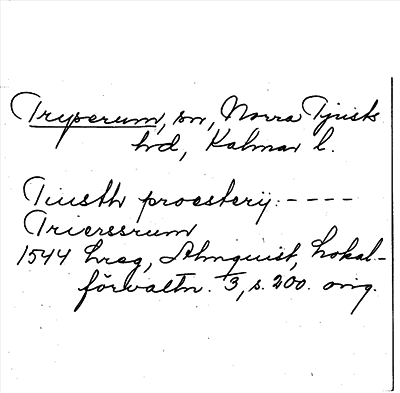 Tryserum, sn, Norra Tjusts
hd, Kalmar l.
Tiusth proesterij: - - - -
Trierssrum
1544 hreg, Almquist, Lokal-
förvaltn. 3, s. 200. orig.